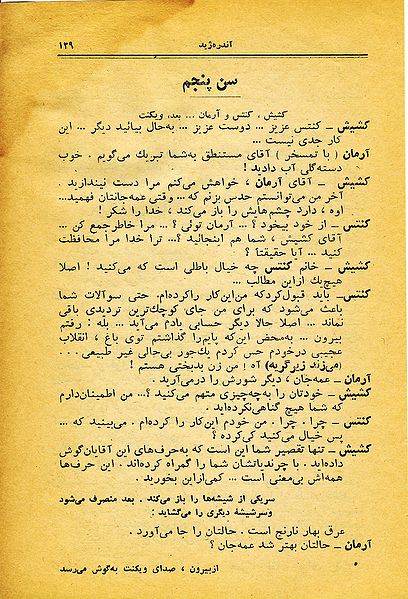 آندره‌ژید
۱۳۹
سن پنجم
کشیش ، کنتس و آرمان ... بعد، ویکنت
کشیش ــ کنتس عزیز ... دوست عزیز ... به‌حال بیائید دیگر ... این
کار جدی نیست ...
آرمان ( با تمسخر ) آقای مستنطق به‌شما تبریك می‌گویم . خوب
دسته‌گلی آب دادید !
کشیش ــ آقای آرمان ، خواهش می‌کنم مرا دست نیندازید .
آخر من می‌توانستم حدس بزنم که ... وقتی عمه‌جانتان فهمید...
اوه ، دارد چشم‌هایش را باز می‌کند ، خدا را شکر !
کنتس ــ از خود بیخود ؟ ... آرمان توئی ؟ ... مرا خاطرجمع کن ...
آقای کشیش ، شما هم اینجائید ؟... ترا خدا مرا محافظت
کنید ... آیا حقیقتاً ؟
کشیش ــ خانم کنتس چه خیال باطلی است که می‌کنید ! اصلا
هیچ‌یك از این مطالب ...
کنتس ــ باید قبول‌کرد که من‌این‌کار راکرده‌ام. حتی سوآلات شما
باعث می‌شود که برای من جای کوچك‌ترین تردیدی باقی
نماند ... اصلا حالا دیگر حسابی یادم می‌آید ... بله : رفتم
بیرون ... به‌محض این‌که پایم‌را گذاشتم توی باغ ، انقلاب
عجیبی درخودم حس کردم یك‌جور بی‌حالی غیر طبیعی ...
(می‌زند زیرگریه) آه ! من زن بدبختی هستم !
آرمان ــ عمه‌جان ، دیگر شورش را درمی‌آرید .
کشیش ــ خودتان را به‌چه‌چیزی متهم می‌کنید ؟... من اطمینان‌دارم
که شما هیچ گناهی‌نکرده‌اید .
کنتس ــ چرا . چرا . من خودم این‌کار را کرده‌ام . می‌بینید که ...
پس خیال می‌کنید کی‌کرده ؟
کشیش ــ تنها تقصیر شما این است که به‌حرف‌های این آقایان‌گوش
داده‌اید . با چرندیاتشان شما را گمراه کرده‌اند . این حرف‌ها
همه‌اش بی‌معنی است ... کمی‌ازاین بخورید .
سریکی از شیشه‌ها را باز می‌کند . بعد منصرف می‌شود
وسرشیشهٔ دیگری را می‌گشاید :
عرق بهار نارنج است . حالتان را جا می‌آورد .
آرمان ــ حالتان بهتر شد عمه‌جان ؟
ازبیرون ، صدای ویکنت به‌گوش می‌رسد